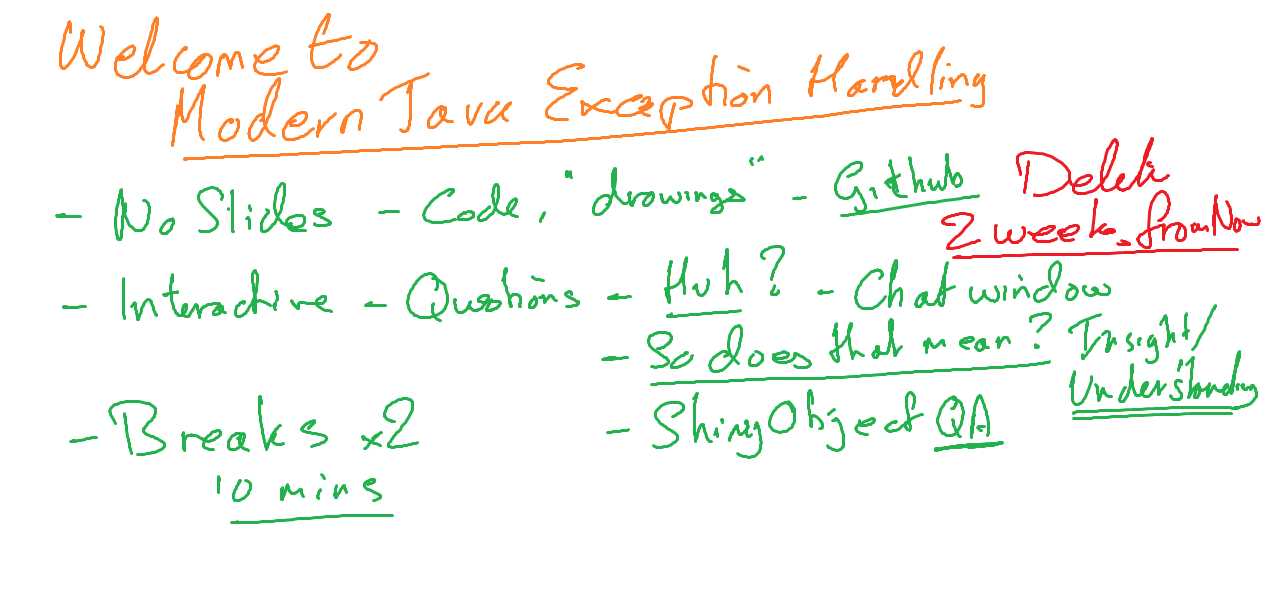 Welcome to
Modern Java Exception Handling
- No Slides - Code, "drawings" - Github
Delete
2 weeks from Now
- Interactive - Questions - Huh? - Chat window
- So does that mean? Insight/
Understanding
- Breaks x2
- Shiny Object QA
10 mins